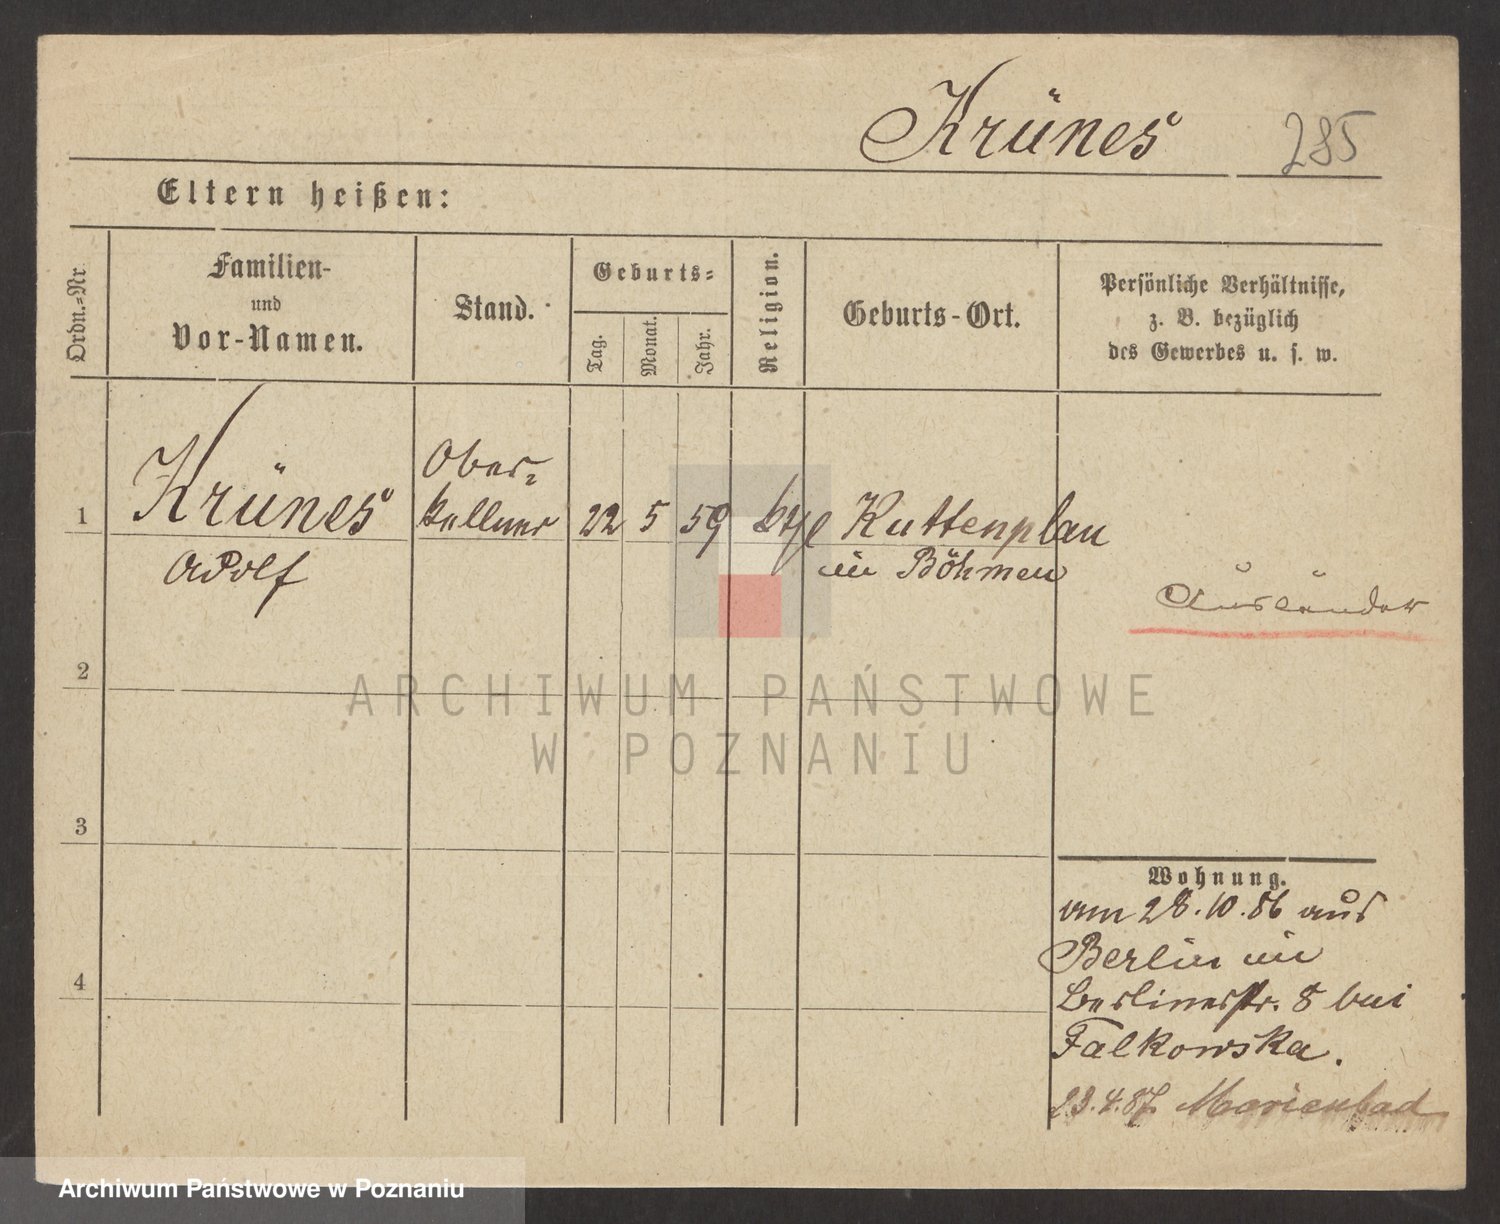 Krünes 285
Eltern heißen:
Ordn.=Nr.
Familien-
und
Vor-Namen.
Stand.
Geburts=
Tag.
Monat.
Jahr.
Religion.
Geburts-Ort.
Persönliche Verhältnisse,
z. B. bezüglich
des Gewerbes u. s. w.
1
Krünes
Adolf
Ober=
kellner
22 5 59
Kuttenplau
in Böhmen
Ausländer
2
3
4
Wohnung.
am 28.10.86 aus
Berlin in
Berlinerstr. 8 bei
Falkowska.
23.4.87 Marienbad
ARCHIWUM PAŃSTWOWE
W POZNANIU
Archiwum Państwowe w Poznaniu